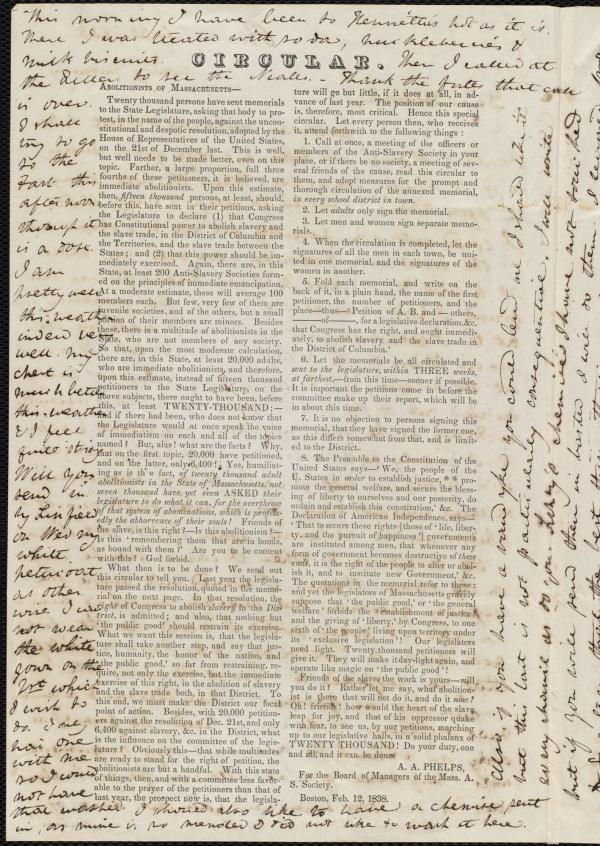 This morning I have been to Henrietta's hot as it is.
There I was treated with soda, huckleberries &
milk biscuits.
Then I called at
the Ellens to see the
Thank the fates that call
is over.
I shall
try to go
to the
East this
afternoon
though it
is a dose.
I am
pretty well
this weather
indeed very
well. My
chest is
much better
this weather
& I feel
quite strong
Will you
send in
by Linfield
on Wed my
white
petticoat
as other
wise I can
not wear
the white
gown on the
1st which
I wish to
do. I one
have one
with me
so I would
not have
that washed. I should also like to have a chemise sent
in, as mine is so mended I did not like to wash it here.
CIRCULAR.
ABOLITIONISTS OF MASSACHUSETTS—
Twenty thousand persons have sent memorials
to the State Legislature, asking that body to pro-
test, in the name of the people, against the uncon-
stitutional and despotic resolution, adopted by the
House of Representatives of the United States,
on the 21st of December last. This is well,
but well needs to be made better, even on this
topic. Farther, a large proportion, full three
fourths of these petitioners, it is believed, are
immediate abolitionists. Upon this estimate,
then, fifteen thousand persons, at least, should,
before this, have sent in their petitions, asking
the Legislature to declare (1) that Congress
has Constitutional power to abolish slavery and
the slave trade, in the District of Columbia and
the Territories, and the slave trade between the
States; and (2) that this power should be im-
mediately exercised. Again, there are, in this
State, at least 200 Anti-Slavery Societies form-
ed on the principles of immediate emancipation.
At a moderate estimate, these will average 100
members each. But few, very few of them are
juvenile societies, and of the others, but a small
portion of their members are minors. Besides
these, there is a multitude of abolitionists in the
State, who are not members of any society.
So that, upon the most moderate calculation,
there are, in this State, at least 20,000 adults,
who are immediate abolitionists, and therefore,
upon this estimate, instead of fifteen thousand
petitioners to the State Legislature, on the
above subjects, there ought to have been, before
this, at least TWENTY-THOUSAND;—
And if there had been, who does not know that
the Legislature would at once speak the voice
of immediatism on each and all of the topics
named? But, alas! what are the facts? Why,
that on the first topic, 20,000 have petitioned
and on the latter, only 6,400! Yes, humiliat-
ing as is the fact, of twenty thousand adult
abolitionists in the State of Massachusetts, not
seven thousand have yet even ASKED their
legislature to do what it can, for the overthrow
of that system of abominations, which is profess-
edly the abhorrence of their souls! Friends of
the slave, is this right?—Is this abolitionism?—
Is this 'remembering them that are in bonds,
as bound with them?' Are you to be content
with this? God forbid.
What then is to be done? We send out
this circular to tell you. Last year the legisla-
ture passed the resolution, quoted in the memo-
rial on the next page. In that resolution, the
right of Congress to abolish slavery in the Dis-
trict, is admitted; and also, that nothing but
'the public good' should restrain its exercise.
What we want this session is, that the legisla-
ture shall take another step, and say that jus-
tice, humanity, the honor of the nation, and
'the public good,' so far from restraining, re-
quire, not only the exercise, but the immediate
exercise of this right, in the abolition of slavery
and the slave trade both, in that District. To
this end, we must make the District our focal
point of action. Besides, with 20,000 petition-
ers against the resolution of Dec. 21st, and only
6,400 against slavery, &c. in the District, what
is the influence on the committee of the legis-
lature? Obviously this—that while multitudes
are ready to stand for the right of petition, the
abolitionists are but a handful. With this state
of things, then, and with a committee less favor-
able to the prayer of the petitioners than that of
last year, the prospect now is, that the legisla-
ture will go but little, if it does at all, in ad-
vance of last year. The position of our cause
is, therefore, most critical. Hence this special
circular. Let every person then, who receives
it, attend forthwith to the following things:
1. Call at once, a meeting of the officers or
members of the Anti-Slavery Society in your
place, or if there be no society, a meeting of sev-
eral friends of the cause, read this circular to
them, and adopt measures for the prompt and
thorough circulation of the annexed memorial,
in every school district in town.
2. Let adults only sign the memorial.
3. Let men and women sign separate memo-
rials.
4. When the circulation is completed, let the
signatures of all the men in each town, be uni-
ted in one memorial, and the signatures of the
women in another.
5. Fold each memorial, and write on the
back of it, in a plain hand, the name of the first
petitioner, the number of petitioners, and the
place—thus—'Petition of A. B. and — others,
of ———, for a legislative declaration, &c.
that Congress has the right, and ought immedi-
ately, to abolish slavery and the slave trade in
the District of Columbia.'
6. Let the memorials be all circulated and
sent to the legislature, within THREE weeks,
at farthest,—from this time—sooner if possible.
It is important the petitions come in before the
committee make up their report, which will be
in about this time.
7. It is no objection to persons signing this
memorial, that they have signed the former one,
as this differs somewhat from that, and is limit-
ed to the District.
8. The Preamble to the Constitution of the
United States says—'We, the people of the
U. States in order to establish justice, * * pro-
mote the general welfare, and secure the bless-
ing of liberty to ourselves and our posterity, do
ordain and establish this constitution,' &c. The
Declaration of American Independence, says—
'That to secure these rights [those of 'life, liber-
ty, and the pursuit of happiness'] governments
are instituted among men, that whenever any
form of government becomes destructive of these
ends, it is the right of the people to alter or abol-
ish it, and to institute new Government,' &c.
The quotations in the memorial refer to these:
and yet the legislators of Massachusetts gravely
suppose that 'the public good,' or 'the general
welfare' forbids the 'establishment of justice,'
and the giving of 'liberty,' by Congress, to one
sixth of the people living upon territory under
its 'exclusive legislation'! Our legislators
need light. Twenty thousand petitioners will
give it. They will make it day-light again, and
operate like magic on 'the public good'!
Friends of the slave, the work is yours—will
you do it? Rather let me say, what abolition-
ist is there that will not do it, and do it now?
Oh! friends! how would the heart of the slave
leap for joy, and that of his oppressor quake
with fear, to see us, by our petitions, marching
up to our legislative halls, in a solid phalanx of
TWENTY THOUSAND! Do your duty, one
and all, and it can be done.
A. A. PHELPS,
For the Board of Managers of the Mass. A.
S. Society.
Boston, Feb. 12, 1838.
Also if you have a wand you could lend me I should like it
but this last is not particularly consequential. Any favorite
but if you will send them in